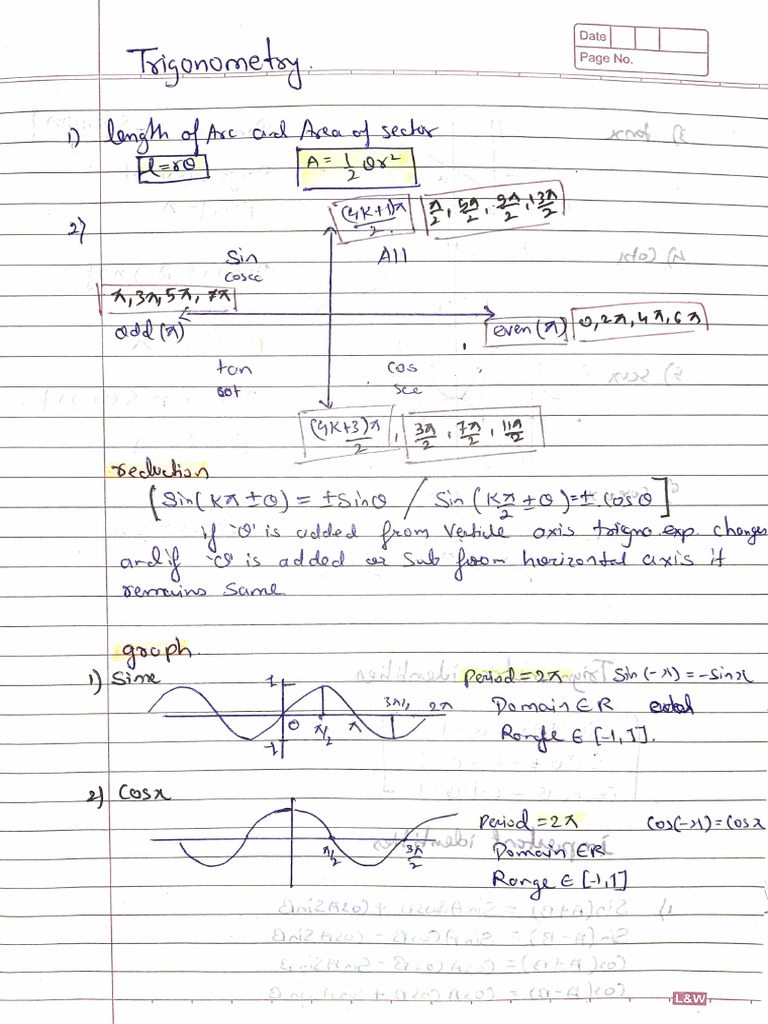 Date
Page No.
Trigonometry.
1) length of Arc and Area of sector
l = rθ A = 1/2 θr²
2) (4K+1)π/2 π/2, 5π/2, 9π/2, 13π/2
Sin All
cosec
π, 3π, 5π, 7π
odd (π) even (π) 0, 2π, 4π, 6π
tan cos
cot sec
(4K+3)π/2, 3π/2, 7π/2, 11π/2
reduction
[Sin(Kπ ± θ) = ± Sinθ / Sin(Kπ/2 ± θ) = ± cosθ]
if 'θ' is added from Verticle axis trigno. exp. changes
and if 'θ' is added or sub from horizontal axis it
remains same
graph.
1) Sinx 1 Period = 2π Sin(-x) = -Sinx
3π/2 2π Domain ∈ R
0 π/2 π Range ∈ [-1, 1].
-1
2) Cosx
Period = 2π Cos(-x) = Cosx
π/2 3π/2 Domain ∈ R
Range ∈ [-1, 1]
L&W